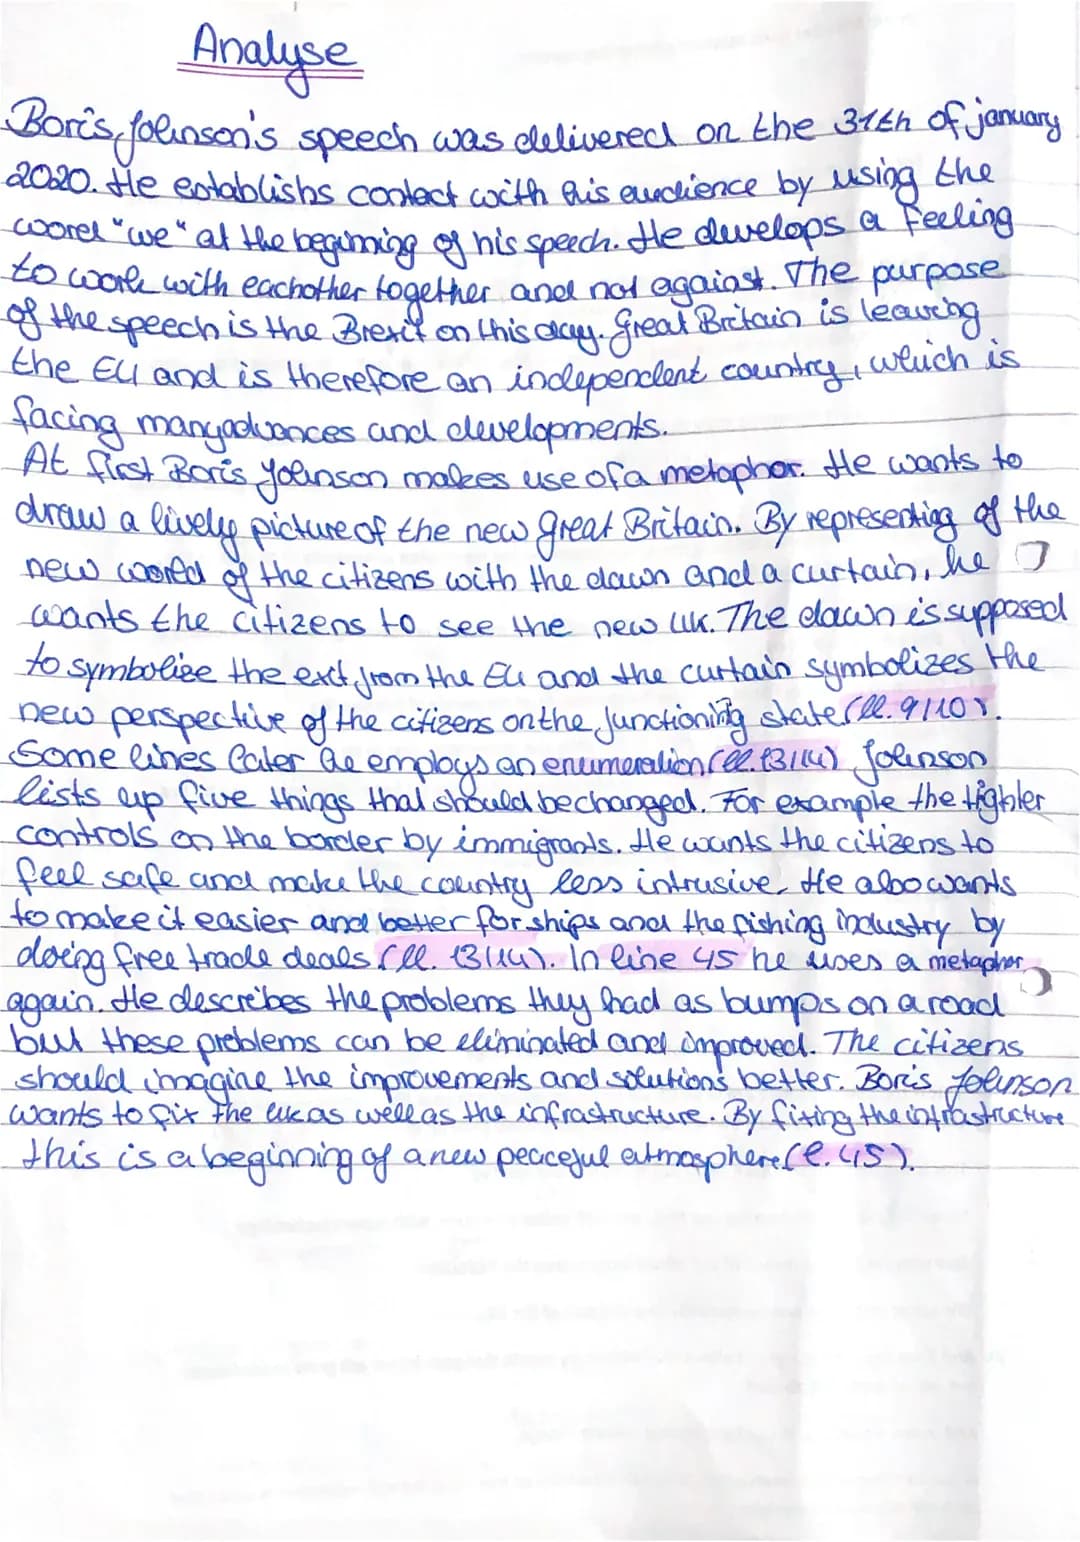 Analyse
Boris Johnson's speech was delivered on the 31th of january
2020. He establishs contact with his audience by using the
word "we" at the beginning of his speech. He develops a feeling
to work with eachother together and not against. The purpose
of the speech is the Brexit on this day. Great Britain is leaving
the EU and is therefore an independent country, which is
facing many advances and developments.
At first Boris Johnson makes use of a metaphor. He wants to
draw a lively picture of the new great Britain. By representing of the
new world of the citizens with the dawn and a curtain, he
wants the citizens to see the new UK. The dawn is supposed
to symbolize the exit from the EU and the curtain symbolizes the
new perspective of the citizens on the functioning state (ll. 9/10).
Some lines later he employs an enumeration (ll. 13/14) Johnson
lists up five things that should be changed. For example the tighter
controls on the border by immigrants. He wants the citizens to
feel safe and make the country less intrusive. He also wants
to make it easier and better for ships and the fishing industry by
doing free trade deals (ll. 13/14). In line 45 he uses a metaphor
again. He describes the problems they had as bumps on a road
but these problems can be eliminated and improved. The citizens
should imagine the improvements and solutions better. Boris Johnson
wants to fix the uk as well as the infrastructure. By fixing the infrastructure
this is a beginning of a new peaceful atmosphere (l. 45).